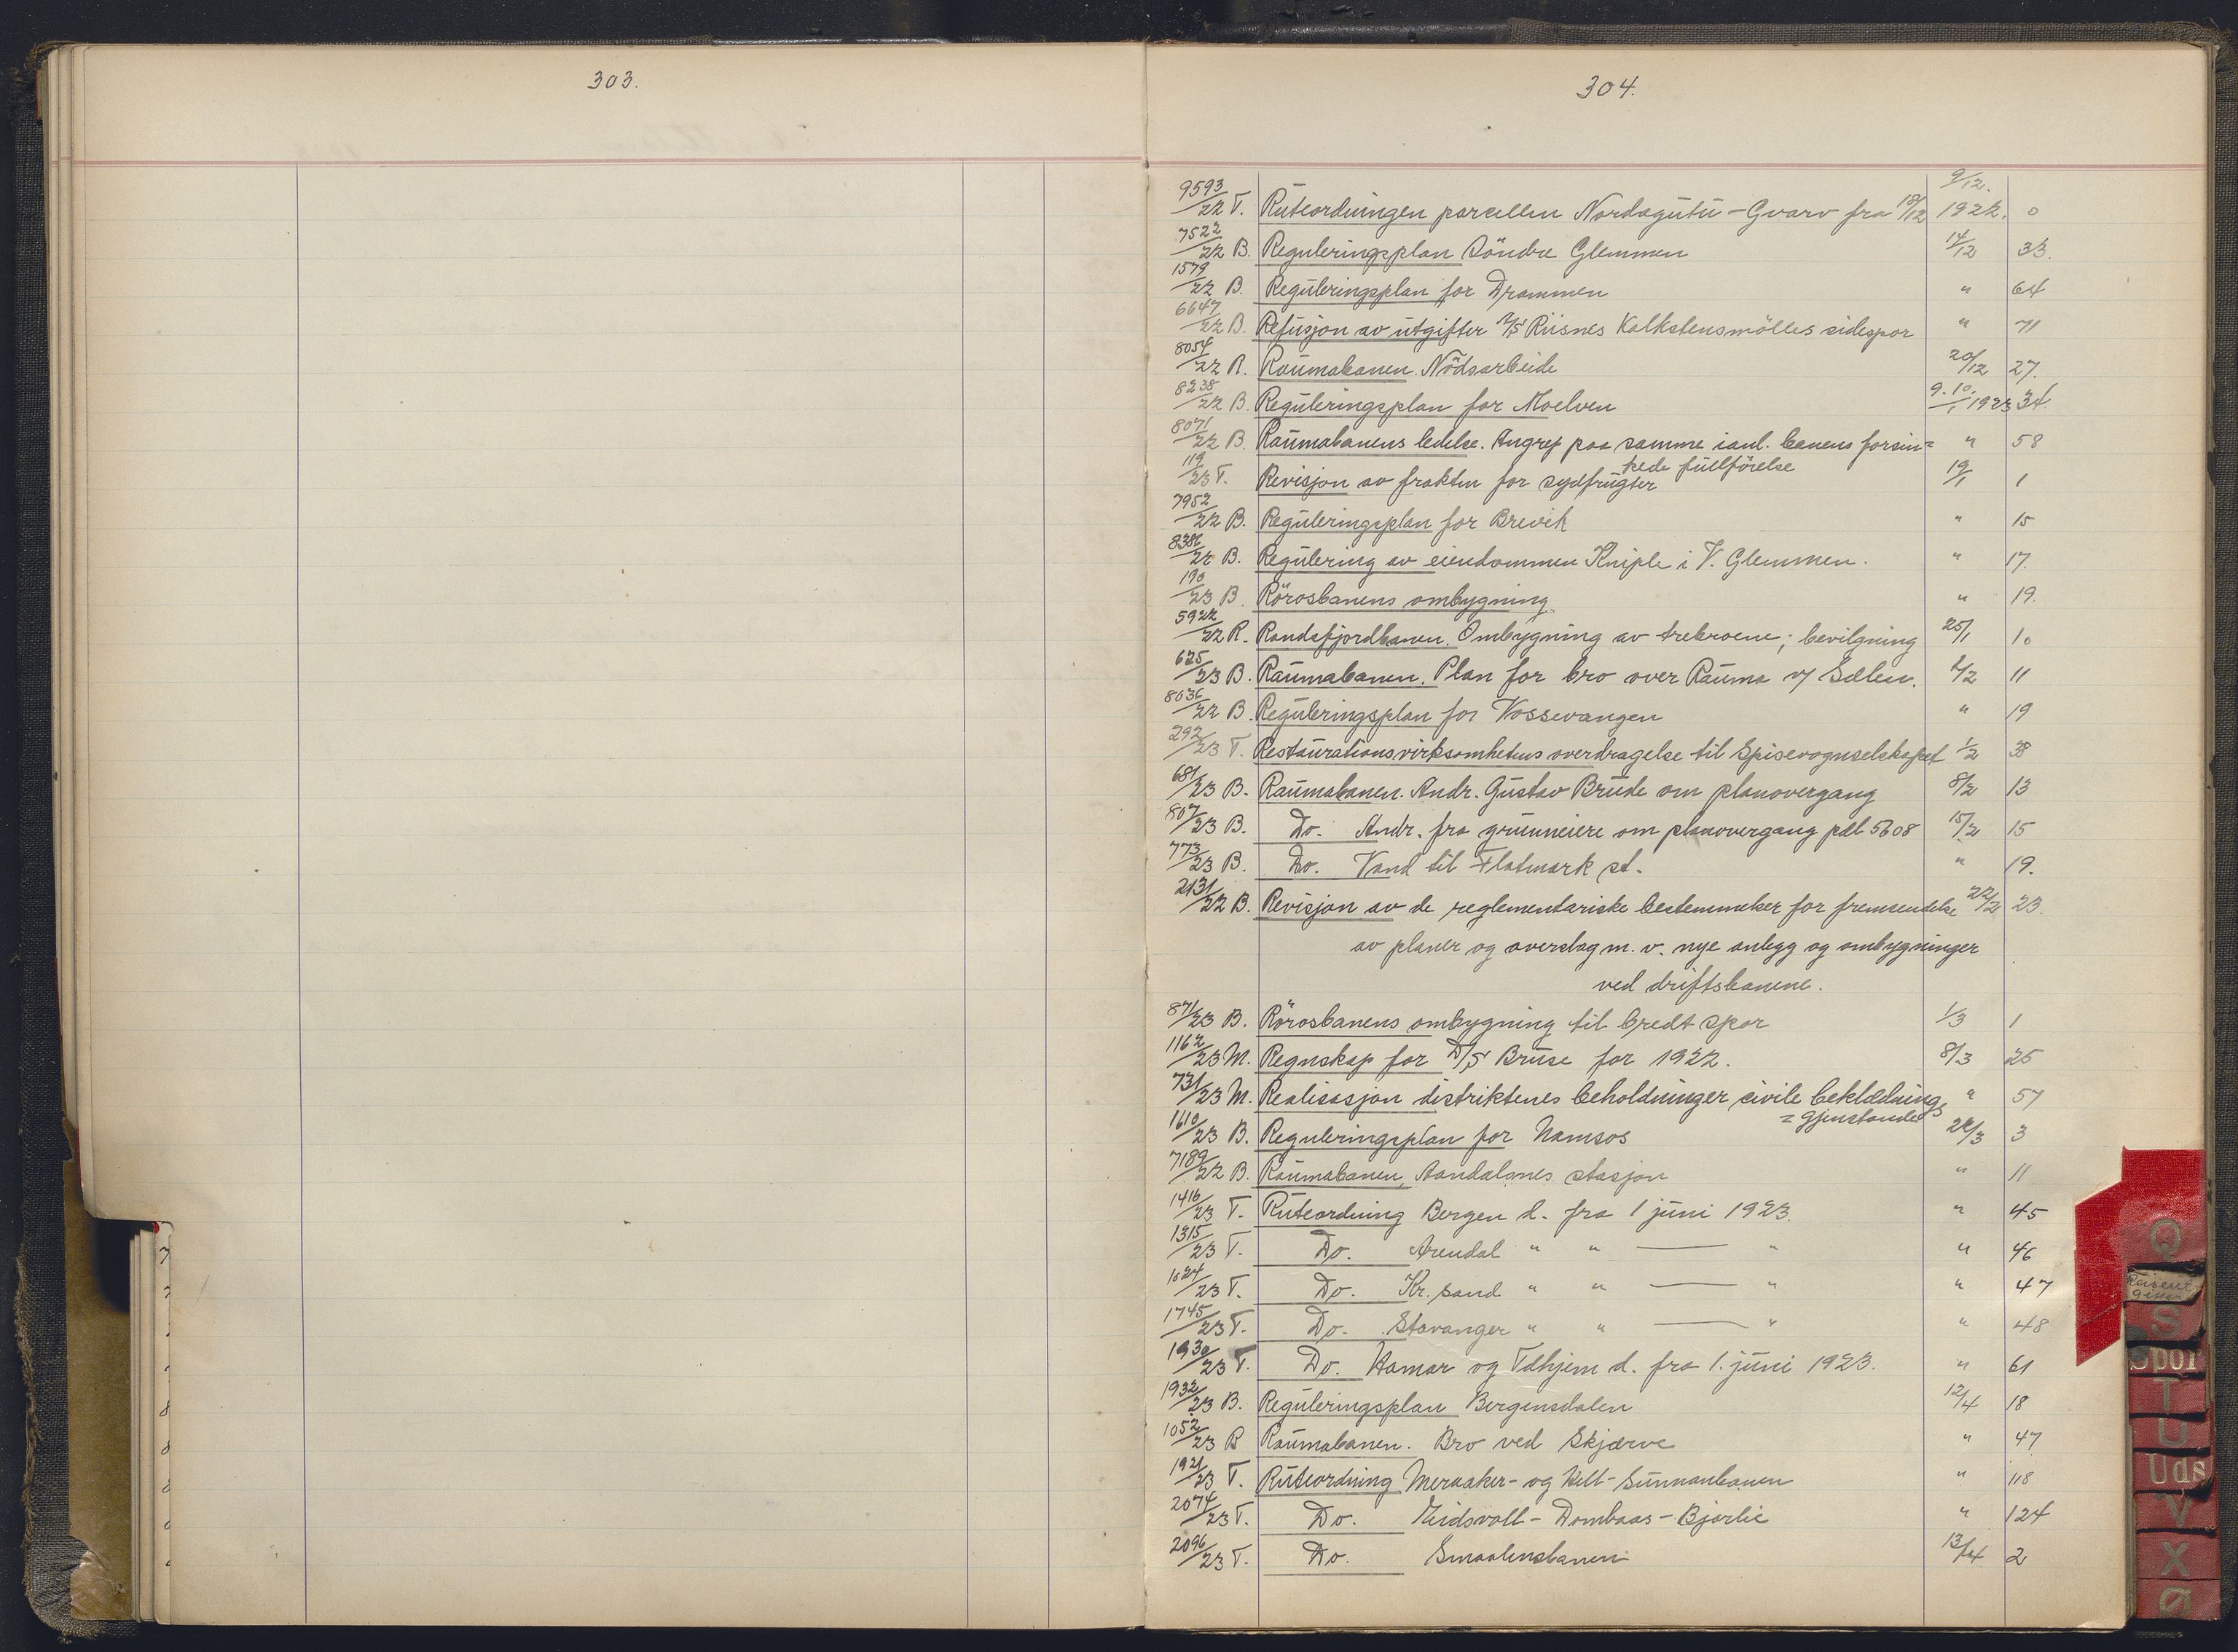 303.
304.
9593/22 T. Ruteordningen parcellen Nordagutu - Gvarv fra 18/12 9/12. 1922. 0
7522/22 B. Reguleringsplan Söndre Glemmen 14/12 33.
1579/22 B. Reguleringsplan for Drammen " 64
6647/22 B. Refusjon av utgifter A/S Riisnes Kalkstensmölles sidespor " 71
8054/22 R. Raumabanen. Nödsarbeide 20/12 27.
8238/22 B. Reguleringsplan for Moelven 9.10/1 1923 34.
8071/22 B. Raumabanens ledelse. Angrep paa samme ianl. banens forsin= " 58
kede fullförelse
119/23 T. Revisjon av frakten for sydfrugter 19/1 1
7952/22 B. Reguleringsplan for Brevik " 15
8386/22 B. Regulering av eiendommen Kniple i V. Glemmen. " 17.
190/23 B. Rörosbanens ombygning " 19.
5922/22 R. Randsfjordbanen. Ombygning av trebroene; bevilgning 25/1 10
625/23 B. Raumabanen. Plan for bro over Rauma v/ Sællen. 1/2 11
8636/22 B. Reguleringsplan for Vossevangen " 19
292/23 T. Restaurationsvirksomhetens overdragelse til Spisevognselskapet 1/2 38
681/23 B. Raumabanen. Andr. Gustav Brude om planovergang 8/2 13
807/23 B. Do. Andr. fra grunneiere om planovergang pæl 5608 15/2 15
773/23 B. Do. Vand til Flatmark st. " 19.
2131/22 B. Revisjon av de reglementariske bestemmelser for fremsendelse 22/2 23.
av planer og overslag m. v. nye anlegg og ombygninger
ved driftsbanene.
871/23 B. Rörosbanens ombygning til bredt spor 1/3 1
1162/23 M. Regnskap for D/S Bruse for 1922. 8/3 25
731/23 M. Realisasjon distriktenes beholdninger civile beklædnings " 57
= gjenstande
1610/23 B. Reguleringsplan for Namsos 22/3 3
7189/22 B. Raumabanen, Aandalsnes stasjon " 11
1416/23 T. Ruteordning Bergen d. fra 1 juni 1923. " 45
1315/23 T. Do. Arendal " " — " " 46
1624/23 T. Do. Kr. sand " " — " " 47
1745/23 T. Do. Stavanger " " — " " 48
1930/23 T. Do. Hamar og Tdhjem d. fra 1. juni 1923. " 61
1932/23 B. Reguleringsplan Bergensdalen 12/4 18
1052/23 B Raumabanen. Bro ved Skjærve " 47
1921/23 T. Ruteordning Meraaker- og Hell-Sunnanbanen " 118
2074/23 T. Do. Eidsvoll - Dombaas - Bjorlie " 124
2096/23 T. Do. Smaalensbanen 13/4 2
Q
S
Spor
T
U
Uds
V
X
Ø